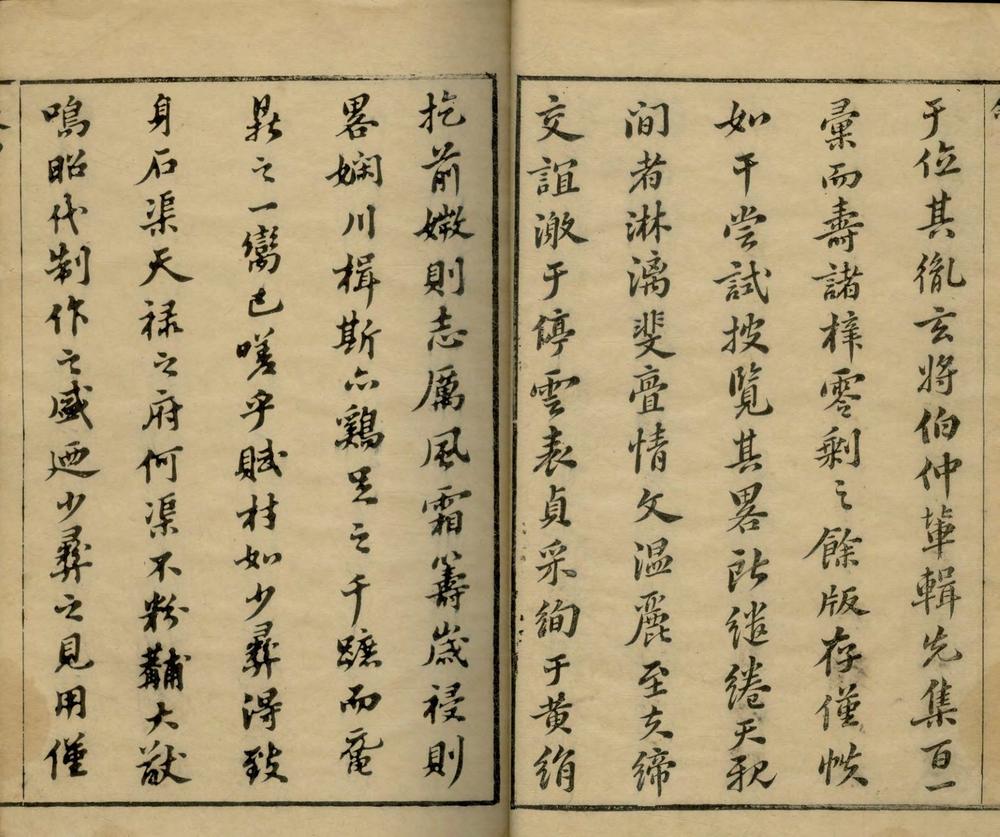 于位其胤玄將伯仲輩輯先集百一
彙而壽諸梓零剩之餘版存僅帙
如干嘗試披覽其畧所繾綣天親
間者淋漓斐亹情文温麗至夫締
交誼激于停雲表貞采絢于黄絹
扢前媺則志厲風霜籌歲祲則
畧嫻川楫斯亦鷄足之千蹠而黿
鼎之一臠已嗟乎賦材如少彝得致
身石渠天禄之府何渠不粉黼大猷
鳴昭代制作之盛迺少彝之見用僅